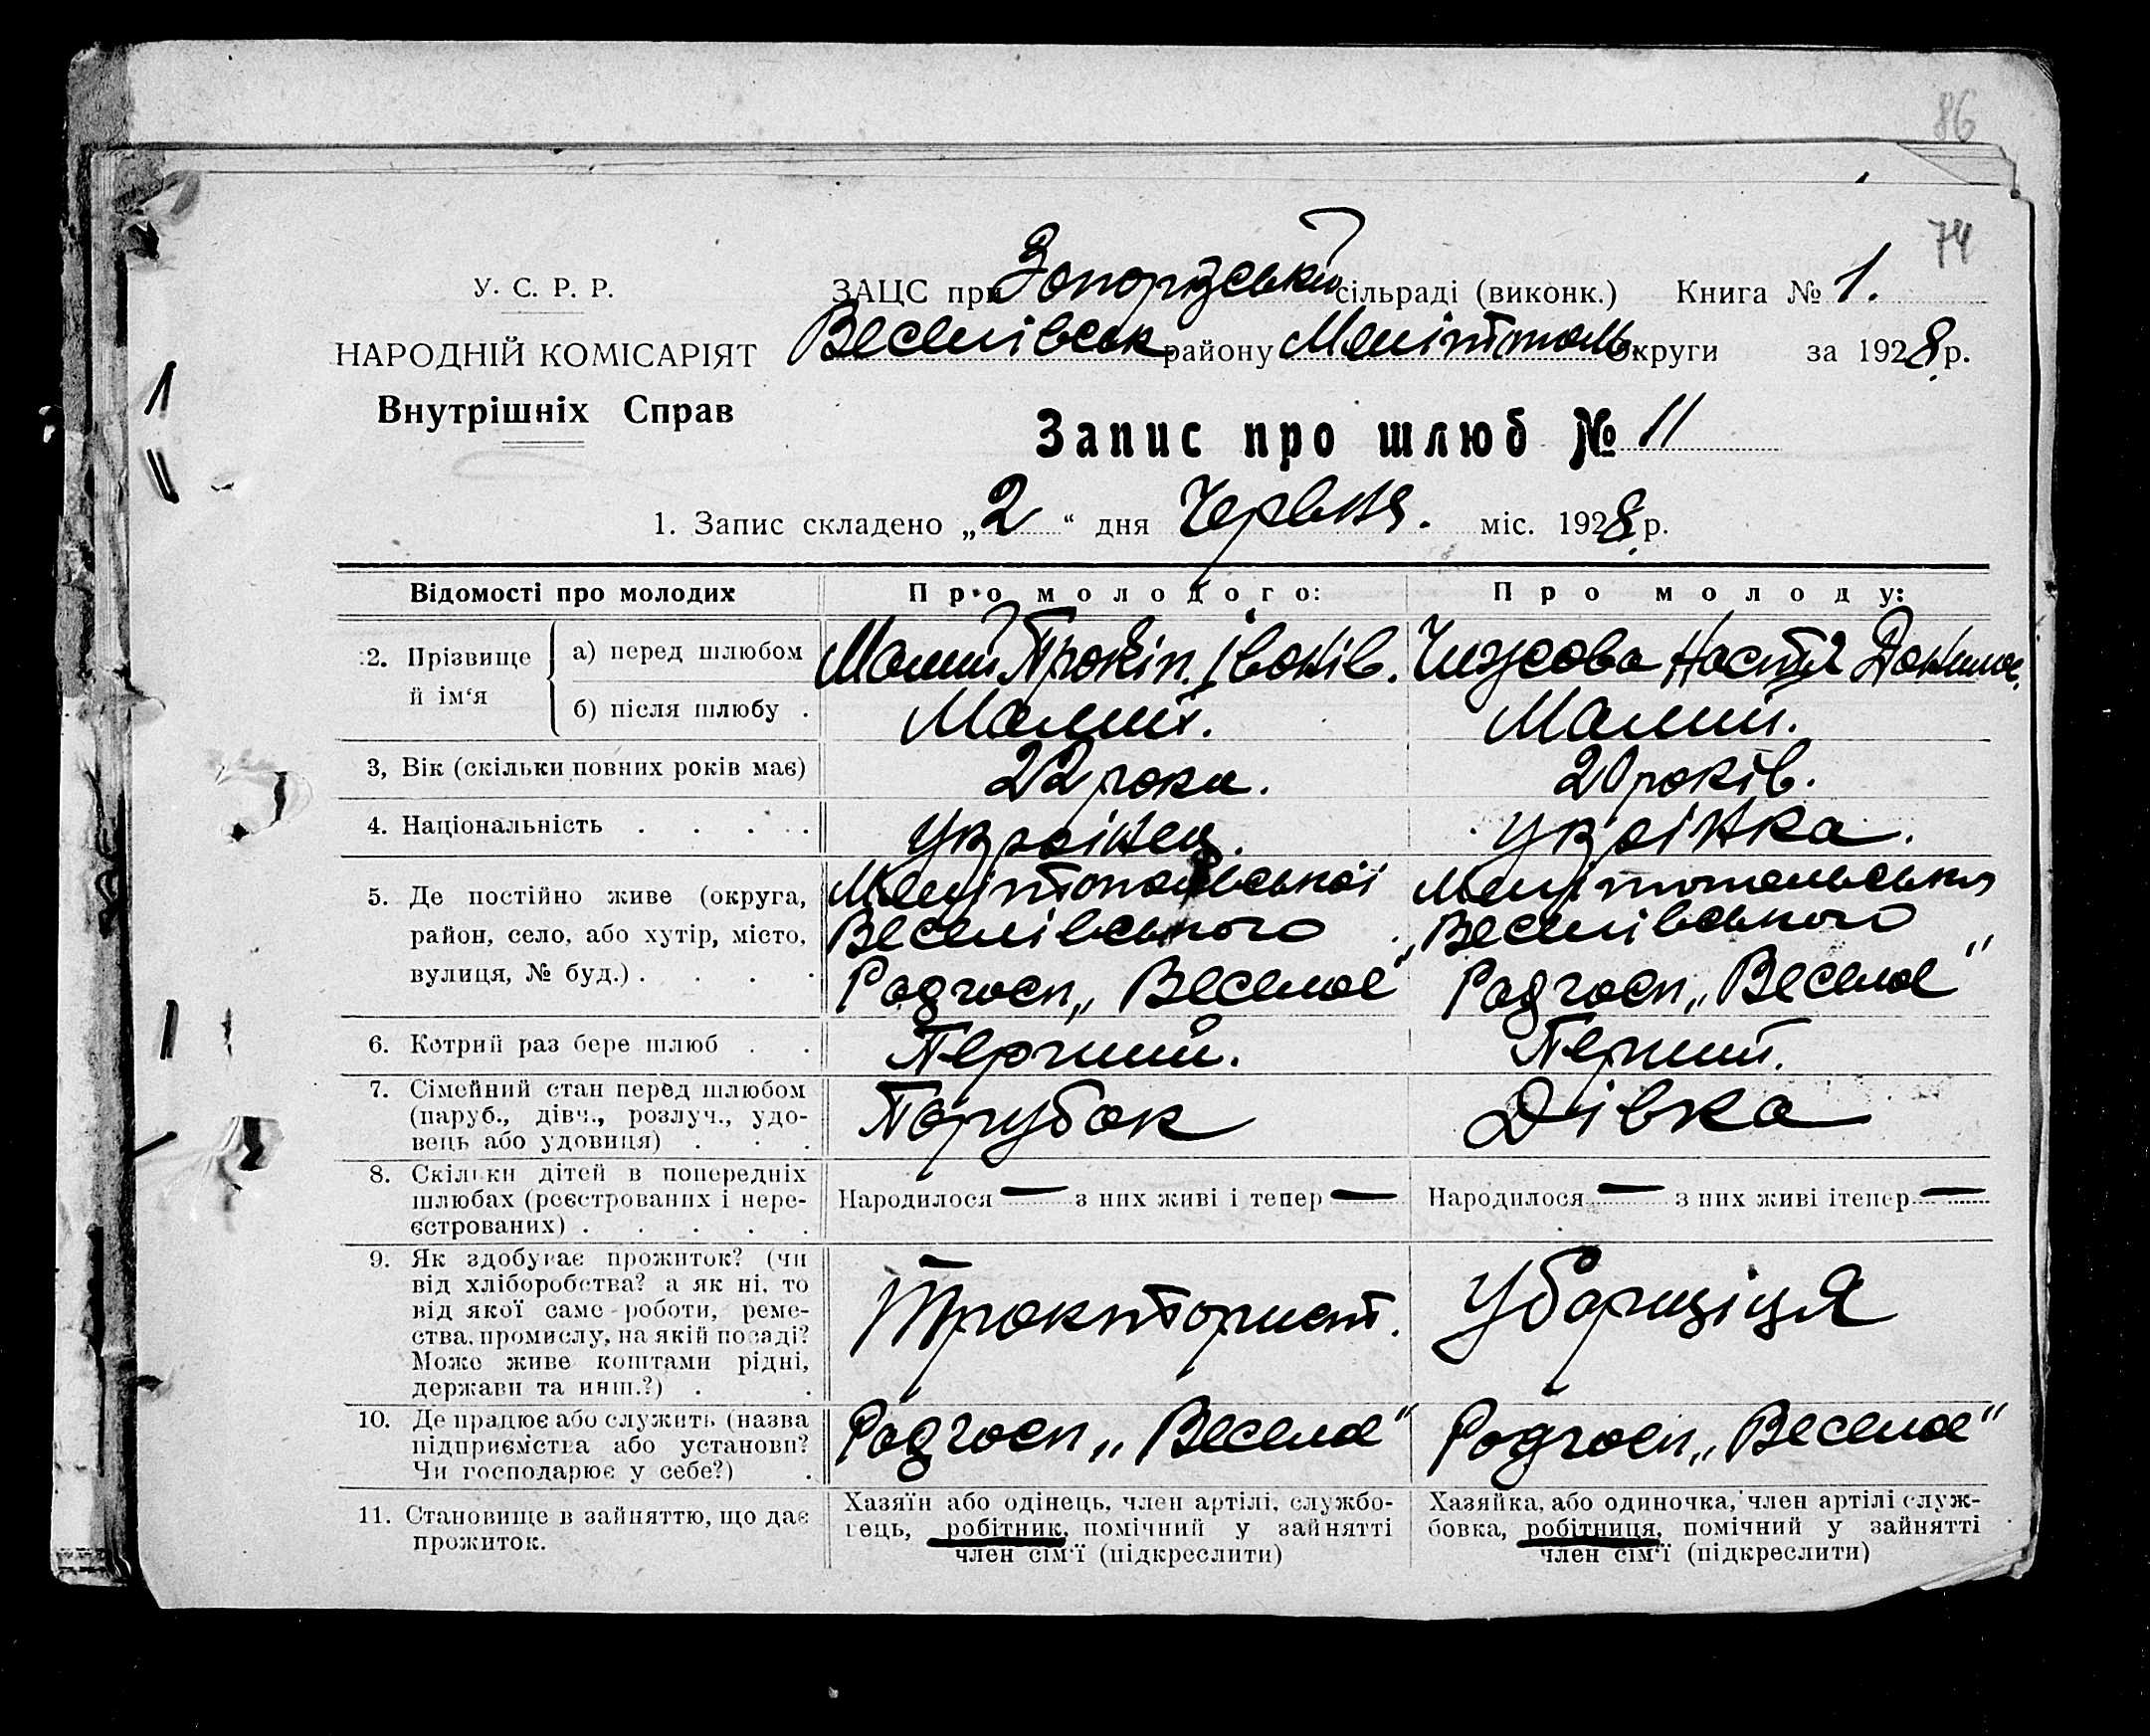 86
74
У. С. Р. Р.
НАРОДНІЙ КОМІСАРІЯТ
Внутрішніх Справ
ЗАЦС при Запорізській сільраді (виконк.) Книга № 1.
Веселівськ району Мелітополь округи за 1928 р.
Запис про шлюб № 11
1. Запис складено „2“ дня Червня. міс. 1928 р.
Відомості про молодих Про молодого: Про молоду:
2. Прізвище й ім‘я
а) перед шлюбом Малий Прокіп. Іванів. Чижова Настя
б) після шлюбу . Малий. Малий.
3, Вік (скільки повних років має) 22 роки. 20 років.
4. Національність . . . . Українец. Українка.
5. Де постійно живе (округа, район, село, або хутір, місто, вулиця, № буд.) . . . .
Мелітопольської Мелітопольська
Веселівського Веселівського
Радгосп „Веселое" Радгосп „Веселое"
6. Котрий раз бере шлюб . . Перший. Перший.
7. Сімейний стан перед шлюбом
(паруб., дівч., розлуч., удо-
вець або удовиця) . . .
Парубок Дівка
8. Скільки дітей в попередніх
шлюбах (реєстрованих і нере-
єстрованих) . . . . .
Народилося — з них живі і тепер — Народилося — з них живі ітепер —
9. Як здобуває прожиток? (чи
від хліборобства? а як ні, то
від якої саме роботи, реме-
ства, промислу, на якій посаді?
Може живе коштами рідні,
держави та инш.?) . .
Тракторист. Уборщіця
10. Де працює або служить (назва
підприємства або установи?
Чи господарює у себе?) .
Радгосп „Веселое" Радгосп „Веселое"
11. Становище в зайняттю, що дає
прожиток.
Хазяїн або одінець, член артілі, службо-
вець, робітник, помічний у зайнятті
член сім‘ї (підкреслити)
Хазяйка, або одиночка, член артілі служ-
бовка, робітниця, помічний у зайнятті
член сім‘ї (підкреслити)